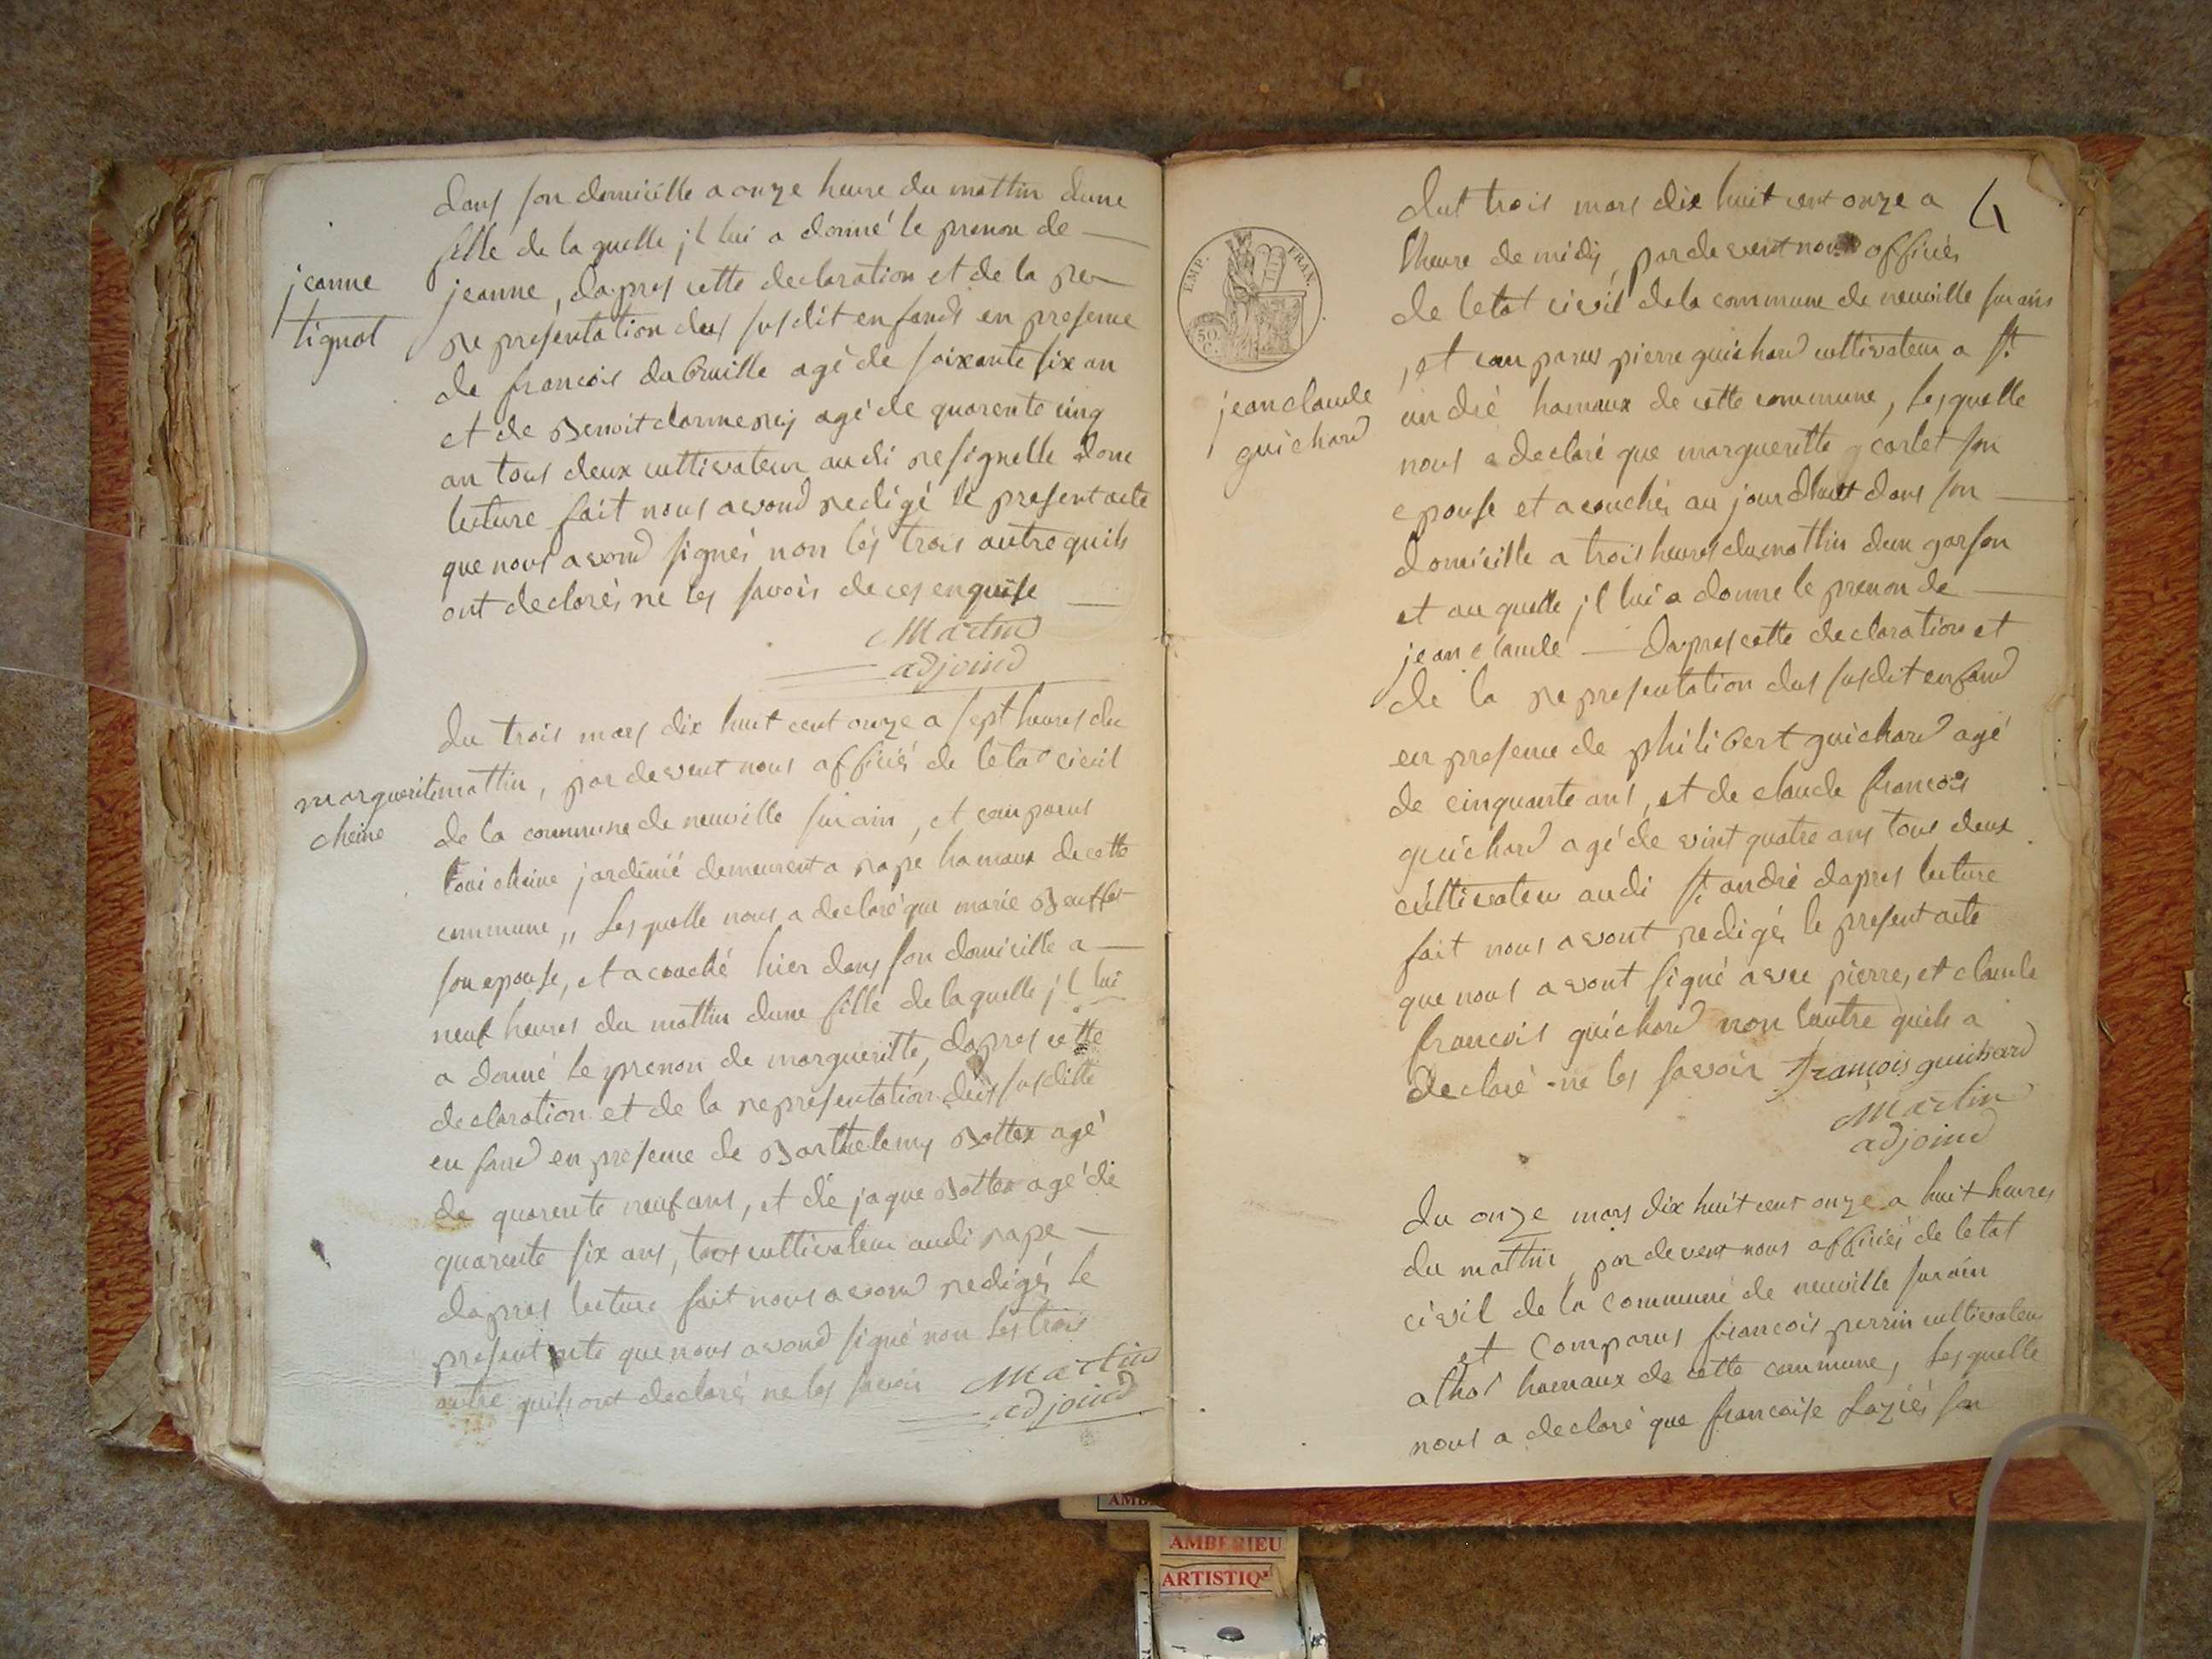 dans son domicille a onze heure du mattin dune
fille de la quelle jl lui a donné le prenon de
jeanne
tignat
jeanne, dapres cette declaration et de la re
representation dus susdit enfands en presence
de francois dabruille agé de soixante six an
et de Benoit darmerey agé de quarente cinq
an tous deux cultivateur audi resignelle donc
lecture fait nous avond redigé le present acte
que nous avond signés non lés trois autre quils
ont declarés ne les savoir de ces enquise
Martin
adjoind
du trois mars dix huit cent onze a sept heures du
marguerite
cheine
mattin, pardevent nous officiés de letat cicil
de la commune de neuville surain, et comparus
loui cheine jardinié demeurent a rape hamaux de cette
commune,, Lesquelle nous a declaré que marie
son epouse, et acouché hier dans son domicille a
neuf heures du mattin dune fille de laquelle jl lui
a donné le prenon de margueritte, dapres cette
declaration et de la representation dus susditte
enfand en presence de Barthelemy Bottex agé
de quarente neuf ans, et dé jaque Bottex agé de
quarente six ans, tous cultivateur audi rape
dapres lecture fait nous avond redigés le
present acte que nous avond signé non les trois
autre quils ont declarés ne les savoir Martin
adjoind
4
EMP. FRAN.
50
C.
jean claude
guichard
dut trois mars dix huit cent onze a
lheure de midy, pardevent nous officiés
de letat civil dela commune de neuville surain
, et comparus pierre guichard cultivateur a St
andré hamaux de cette commune, Lesquelle
nous a declaré que margueritte gcarlet son
epouse et acouchés au jourdhuit dans son
domicille a trois heures du mattin dun garson
et au quelle jl lui a donne le prenon de
jean claude dapres cette declaration et
de la representation dus susdit enfand
en presence de philibert guichard agé
de cinquante ans, et de claude francois
guichard agé de vint quatre ans tous deux
cultivateur audi St andré dapres lecture
fait nous avont redigés le present acte
que nous avont signé avec pierre, et claude
francois guichard non lautre quils a
declaré ne les savoir francois guichard
Martin
adjoind
du onze mars dix huit cent onze a huit heures
du mattin, pardevent nous officiés de letat
cisvil de la commune de neuville surain
et comparus francois perrin cultivateur
a thol hamaux de cette commune, Lesquelle
nous a declaré que francoise Laziés son
AMBERIEU
ARTISTIQ